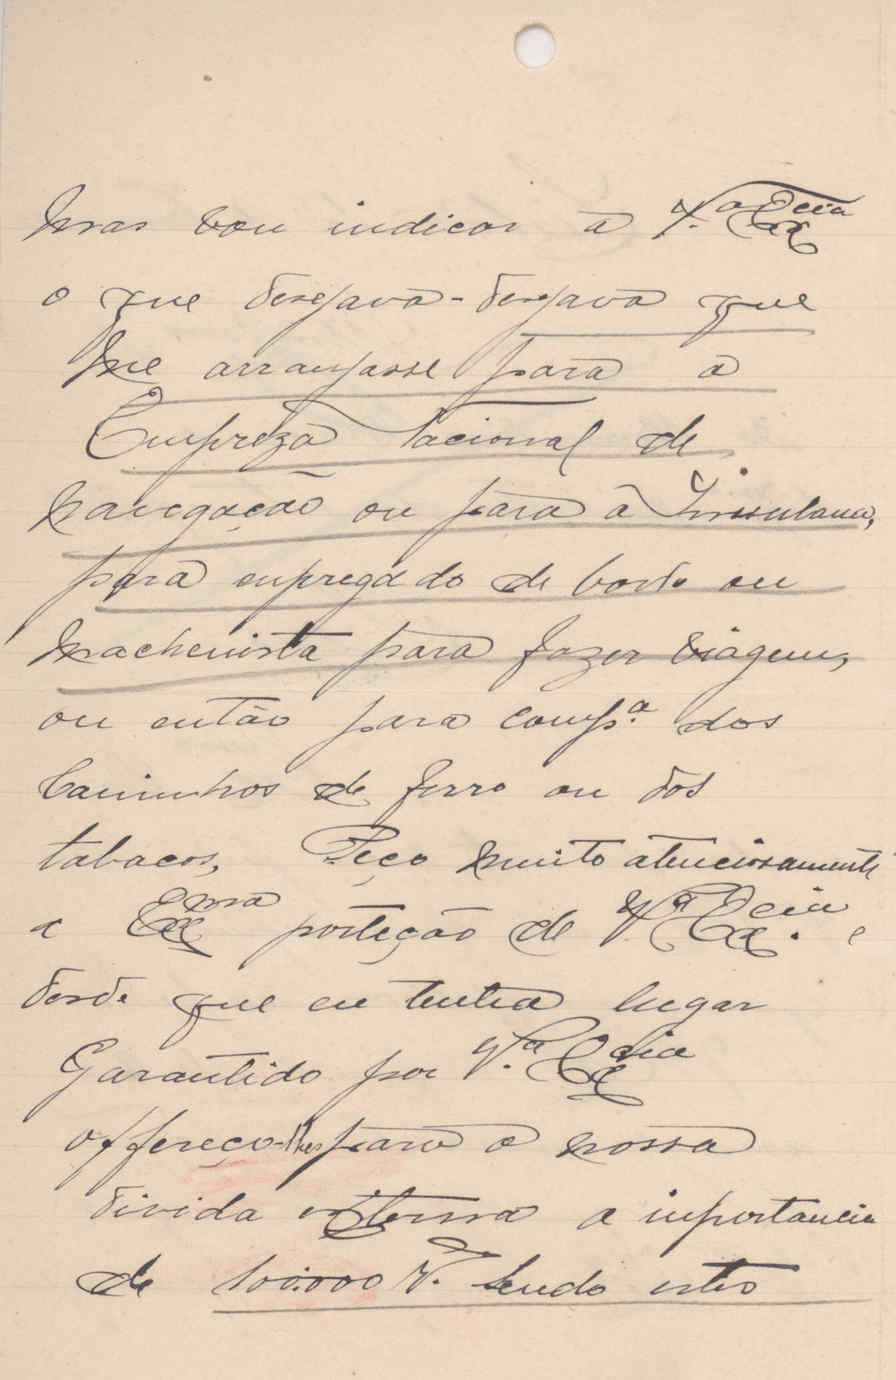 mas vou indicar a V.ª Ex.cia
o que desejava - desejava que
me arranjasse para a
Empreza Nacional de
navegação ou para a Insulana,
para empregado de bordo ou
machenista para fazer viagem,
ou então para comp.ª dos
Caminhos de ferro ou dos
tabacos, Peço muito atenciosamente
a Exma proteção de V.ª Ex.cia e
desde que eu tenha lugar
Garantido por V.ª Ex.cia
offereço-lhes para a nossa
divida externa a importancia
de 100.000 R. sendo estes